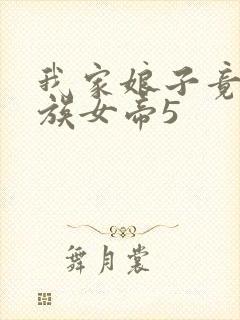 我家娘子竟
族女帝5
舞月裳